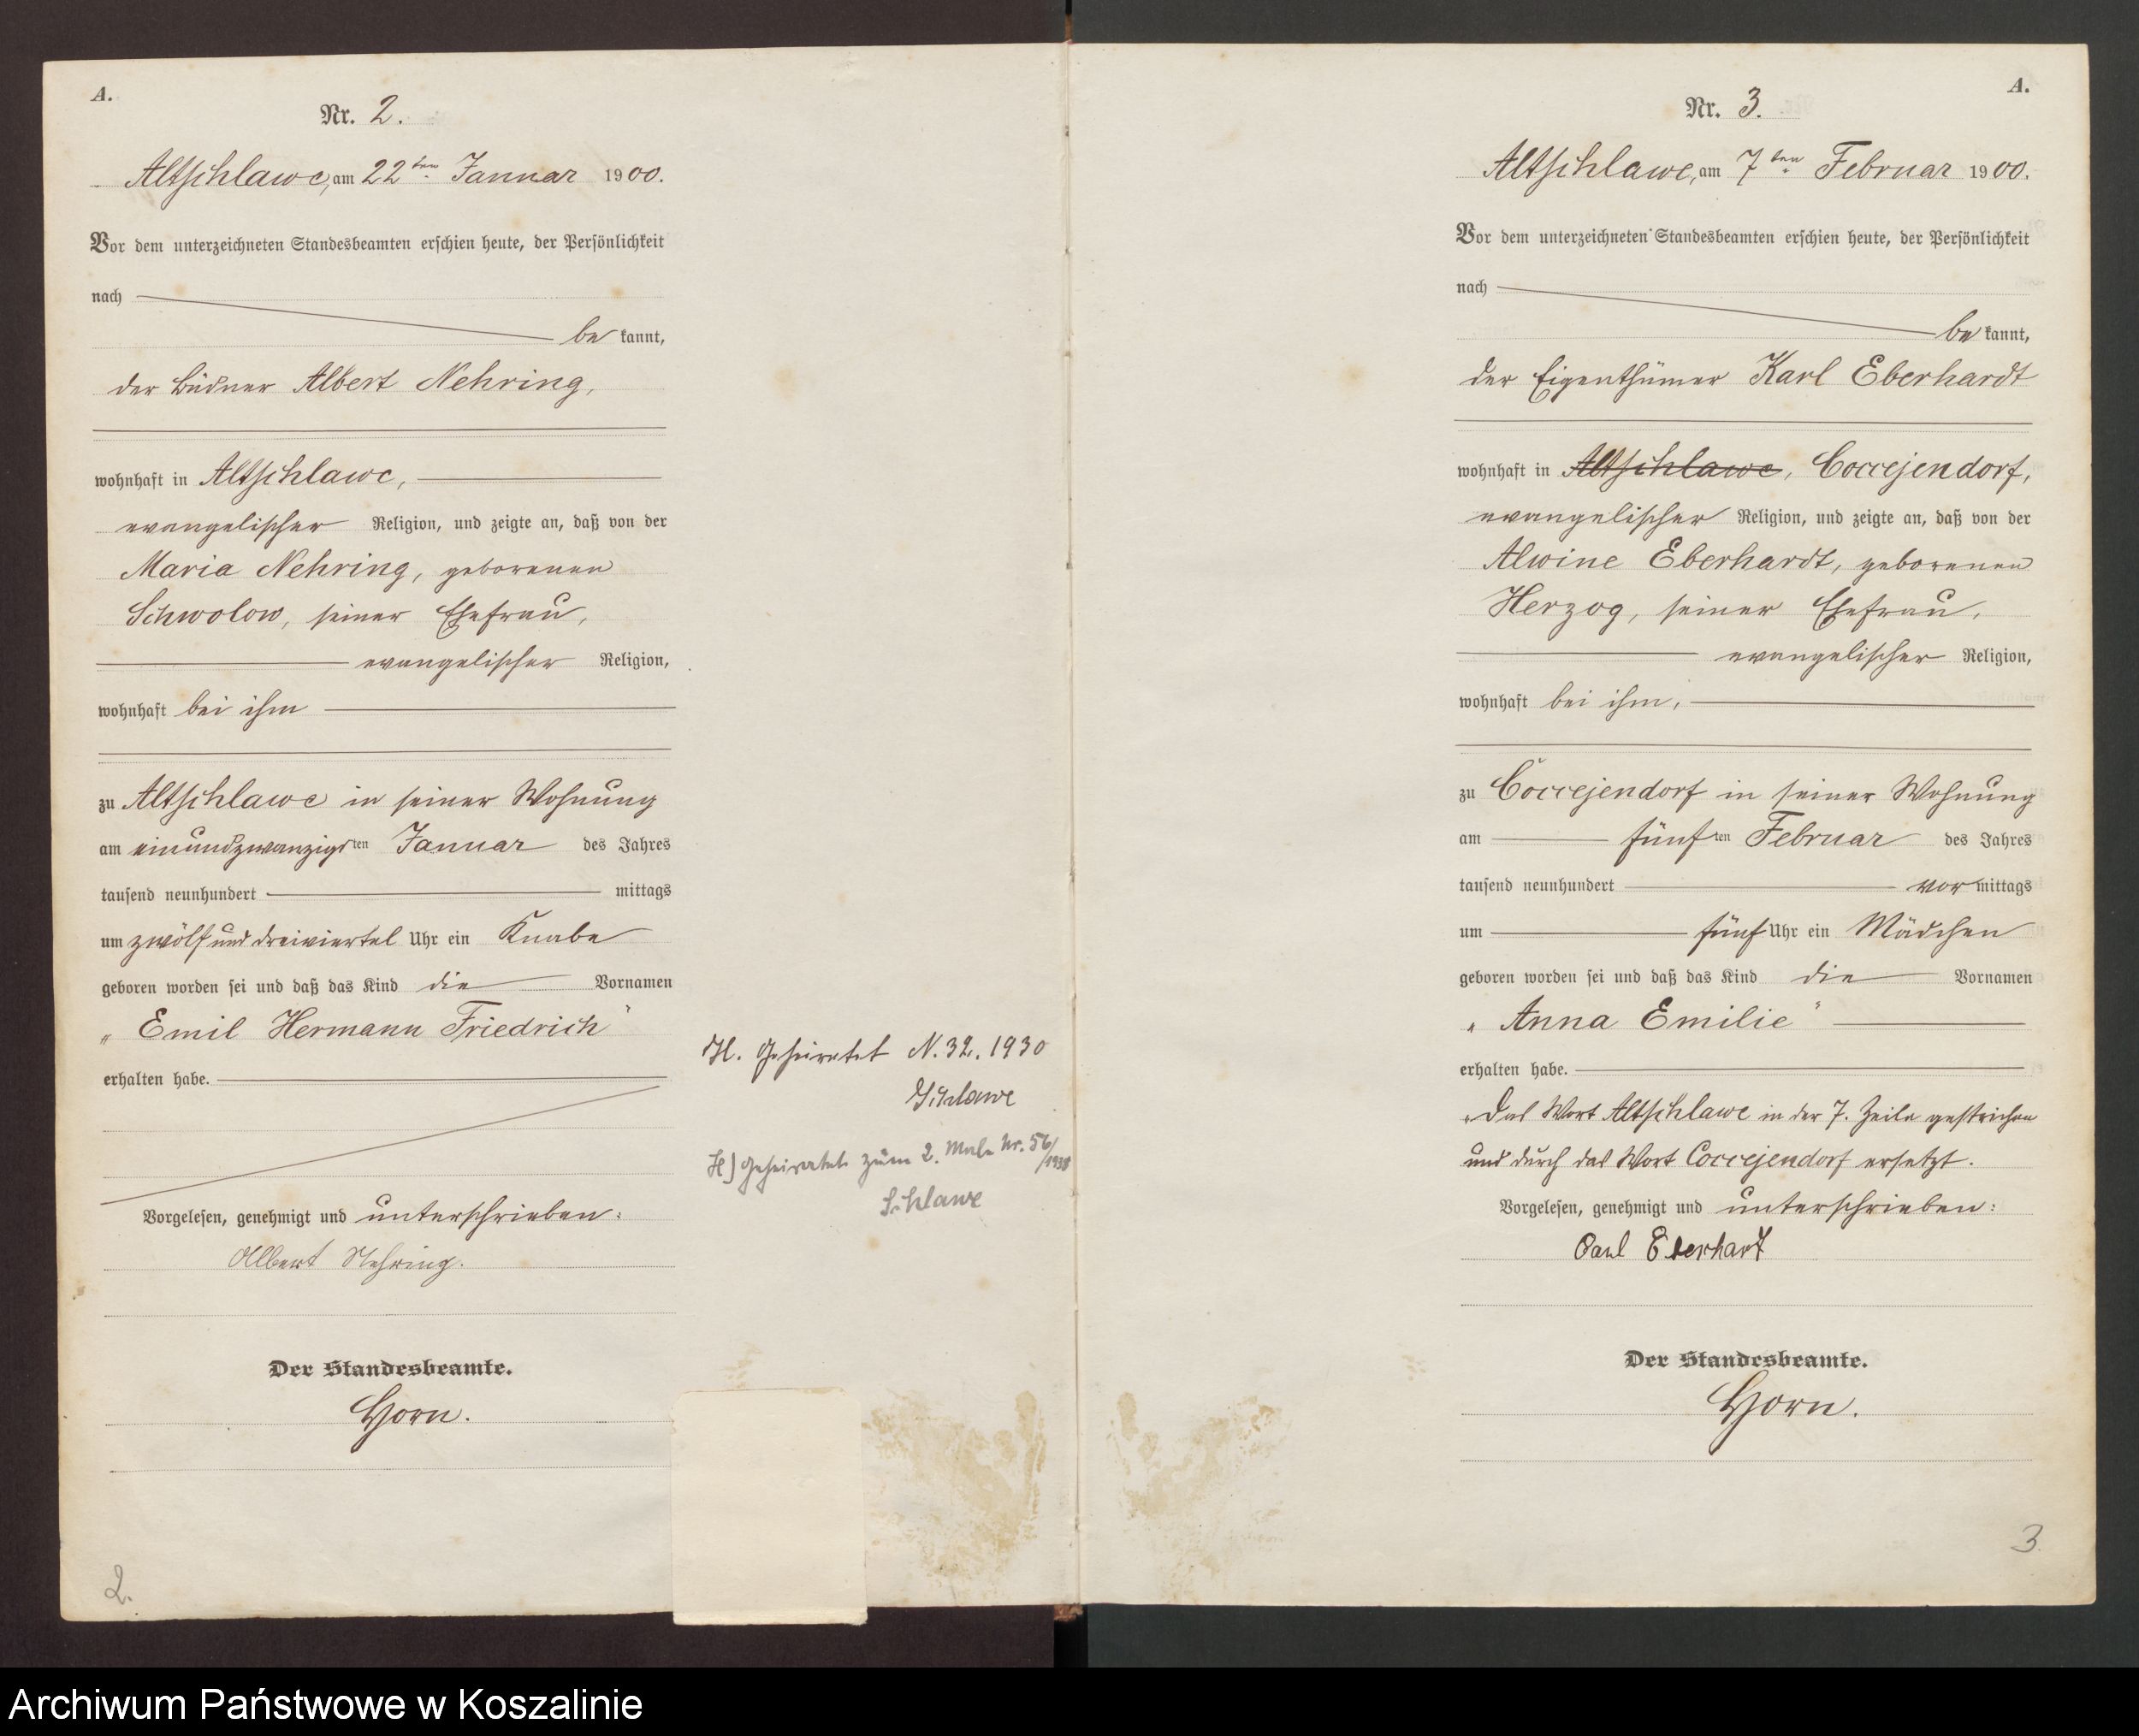 A.
Nr. 2.
Altschlawe, am 22ten Januar 1900.
Vor dem unterzeichneten Standesbeamten erschien heute, der Persönlichkeit
nach
be kannt,
der Büdner Albert Nehring,
wohnhaft in Altschlawe,
evangelischer Religion, und zeigte an, daß von der
Maria Nehring, geborenen
Schwolow, seiner Ehefrau,
evangelischer Religion,
wohnhaft bei ihm
zu Altschlawe in seiner Wohnung
am einundzwanzigsten Januar des Jahres
tausend neunhundert mittags
um zwölf und dreiviertel Uhr ein Knabe
geboren worden sei und daß das Kind die Vornamen
„Emil Hermann Friedrich"
erhalten habe.
Vorgelesen, genehmigt und unterschrieben:
Albert Nehring.
Der Standesbeamte.
Horn.
2.
H. Geheiratet N. 32. 1930
Schlawe
H) Geheiratet zum 2. Male Nr. 56/1938
Schlawe
A.
Nr. 3.
Altschlawe, am 7ten Februar 1900.
Vor dem unterzeichneten Standesbeamten erschien heute, der Persönlichkeit
nach
be kannt,
der Eigenthümer Karl Eberhardt
wohnhaft in Altschlawe, Coccejendorf,
evangelischer Religion, und zeigte an, daß von der
Alwine Eberhardt, geborenen
Herzog, seiner Ehefrau,
evangelischer Religion,
wohnhaft bei ihm,
zu Coccejendorf in seiner Wohnung
am fünften Februar des Jahres
tausend neunhundert vormittags
um fünf Uhr ein Mädchen
geboren worden sei und daß das Kind die Vornamen
„Anna Emilie"
erhalten habe.
Das Wort Altschlawe in der 7. Zeile gestrichen
und durch das Wort Coccejendorf ersetzt.
Vorgelesen, genehmigt und unterschrieben:
Carl Eberhart
Der Standesbeamte.
Horn.
3
Archiwum Państwowe w Koszalinie